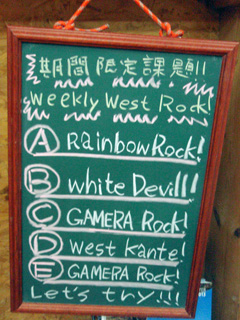 期間限定課題!!
Weekly West Rock!
A RainbowRock!
B white Devil!!
C GAMERA Rock!
D West Kante!
E GAMERA Rock!
Let's try!!!